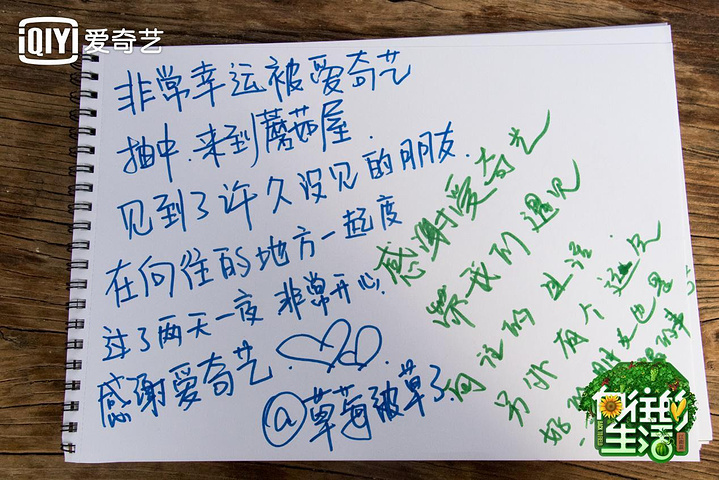 iQIYI 爱奇艺
非常幸运被爱奇艺
抽中.来到蘑菇屋.
见到了许久没见的朋友.
在向往的地方一起度
过了两天一夜 非常开心.
感谢爱奇艺.
@草莓被草了.
感谢爱奇艺
带我们遇见
向往的生活.
另外有个这见
向往的生活